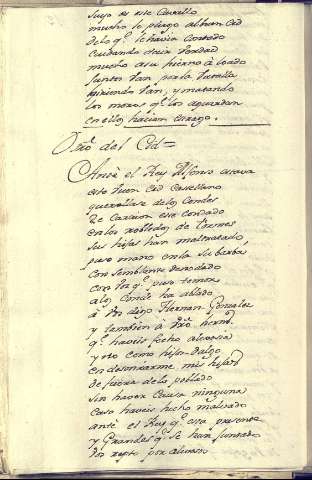 suyo es este Cavallo
mucho le plugo al buen Cid
de lo q.e le havia Contado
Cuidando decir Verdad
mucho a su hierno a loado
Juntos Van por la batalla
hiriendo Van, y matando
los moros q.e los aguardan
en ellos hacian estrago.
Otro del Cid=
Ante el Rey Alfonso estava
este buen Cid Castellano
querellase de los Condes
De Carrion ese condado
en los robledos de Tormes
sus hijas han maltratado
puso mano en la su barba
Con semblante denodado
con la q.e puso temor
a los Condes ha ablado
a Vos digo Hernan Gonzalez
y tambien a Vro herno.
q.e haveis fecho alevosia
y no como hijos-dalgo
en desonrarme mis hijas
de fuera de lo poblado
sin haver Causa ninguna
Caso haveis hecho malvado
ante el Rey q.e esta presente
y Grandes q.e se han juntado
Vos repto por alevoso